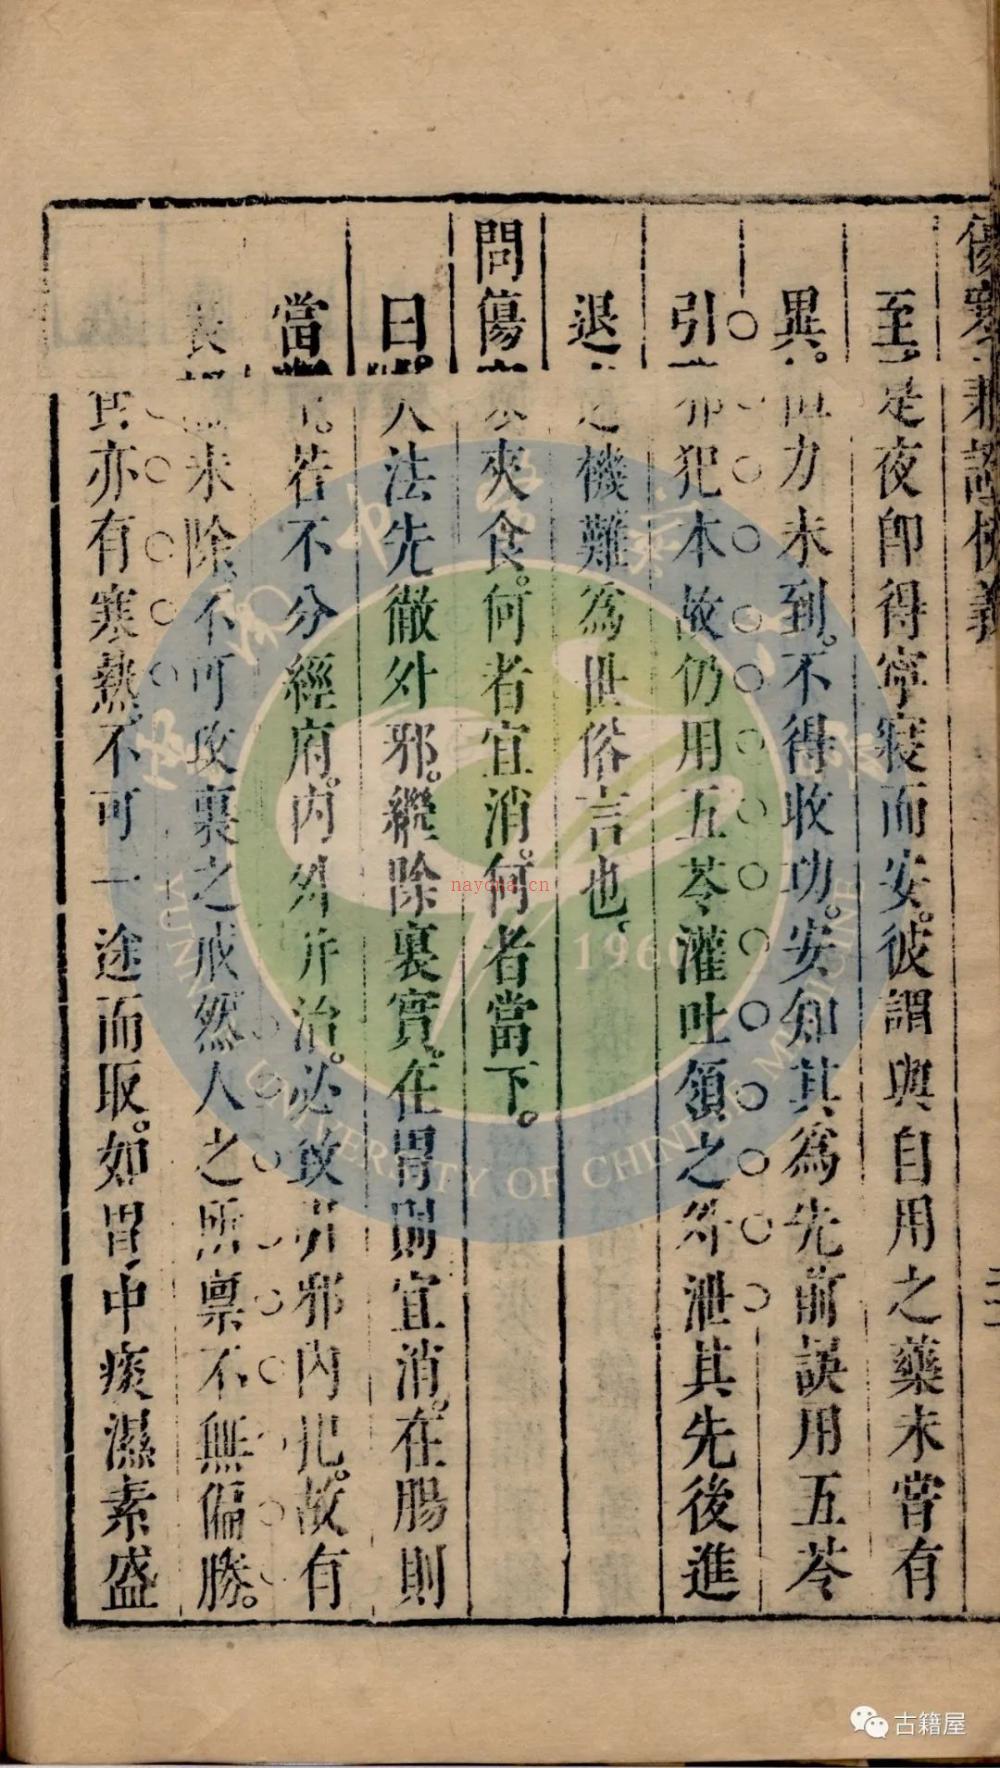 傷寒兼證析義
至是夜即得寧寢而安。彼謂與自用之藥未嘗有
異。但力未到。不得收功。安知其為先前誤用五苓
引邪犯本故仍用五苓灌吐領之外泄其先後進
退之機難為世俗言也、
問傷寒夾食。何者宜消。何者當下。
曰。大法先徹外邪。繼除裏實。在胃則宜消。在腸則
當下。若不分經府。內外并治。必致引邪內犯。故有
表未除。不可攻裏之戒然人之所禀不無偏勝。
食亦有寒熱。不可一途而取。如胃中痰濕素盛
1960
UNIVERSITY OF CHINESE MEDICINE
nayona.cn
古籍屋